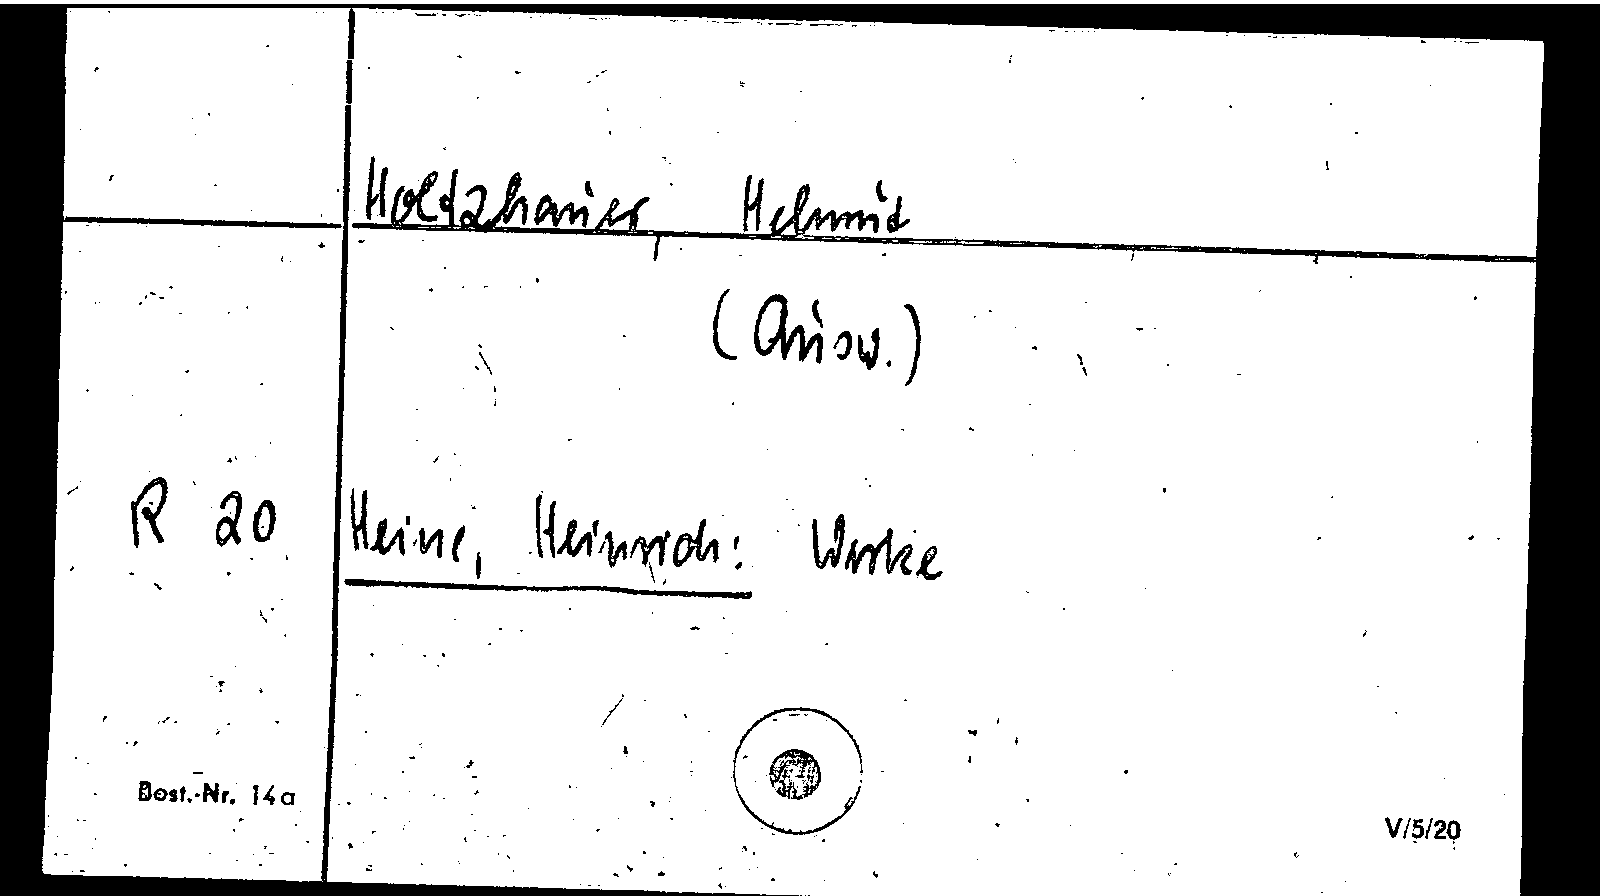 Holtzhauer Helmut
(Ausw.)
R 20 Heine, Heinrich: Werke
Best.-Nr. 14a
V/5/20